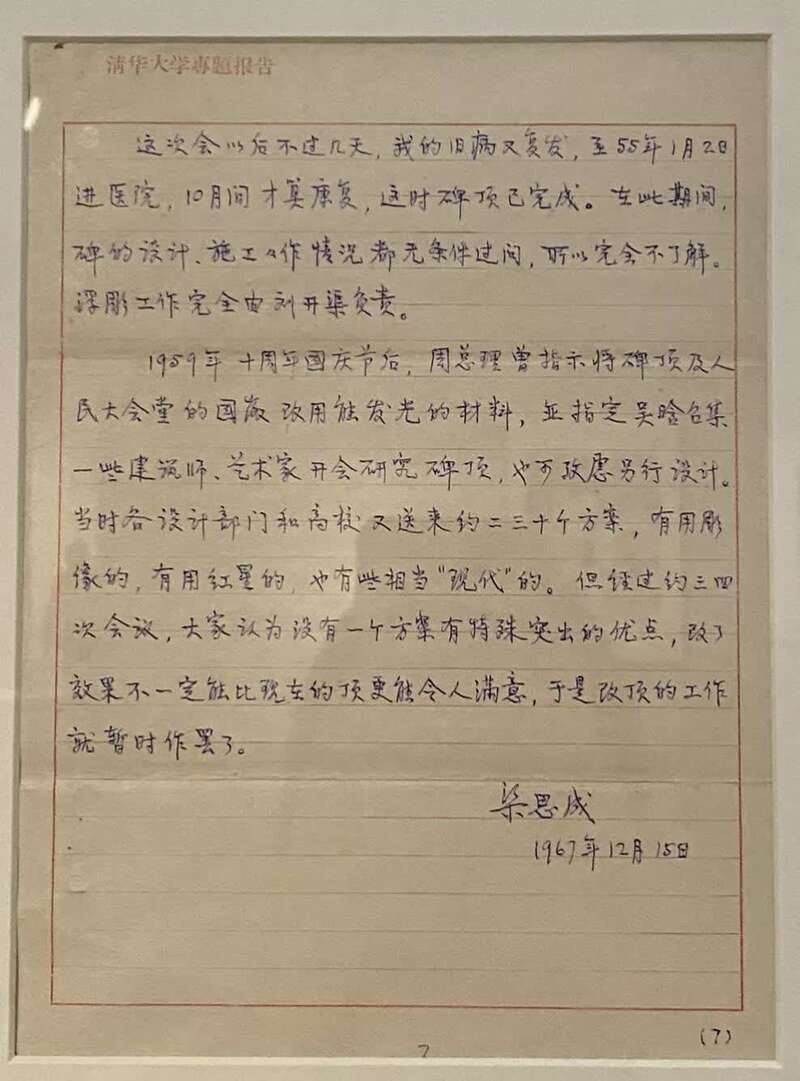 清华大学專题报告
这次会以后不过几天，我的旧病又复发，至55年1月2日
进医院，10月间才算康复，这时碑顶已完成。在此期间，
碑的设计、施工工作情况都无条件过问，所以完全不了解。
浮彫工作完全由刘开渠负责。
1959年十周年國庆节后，周总理曾指示将碑顶及人
民大会堂的國徽改用能发光的材料，並指定吴晗召集
一些建筑师、艺术家开会研究碑顶，也可攷虑另行设计。
当时各设计部门和高校又送来约二三十个方案，有用彫
像的，有用红星的，也有些相当“现代”的。但经过约三四
次会议，大家认为没有一个方案有特殊突出的优点，改了
效果不一定能比现在的顶更能令人满意，于是改顶的工作
就暂时作罢了。
梁思成
1967年12月15日
(7)
7